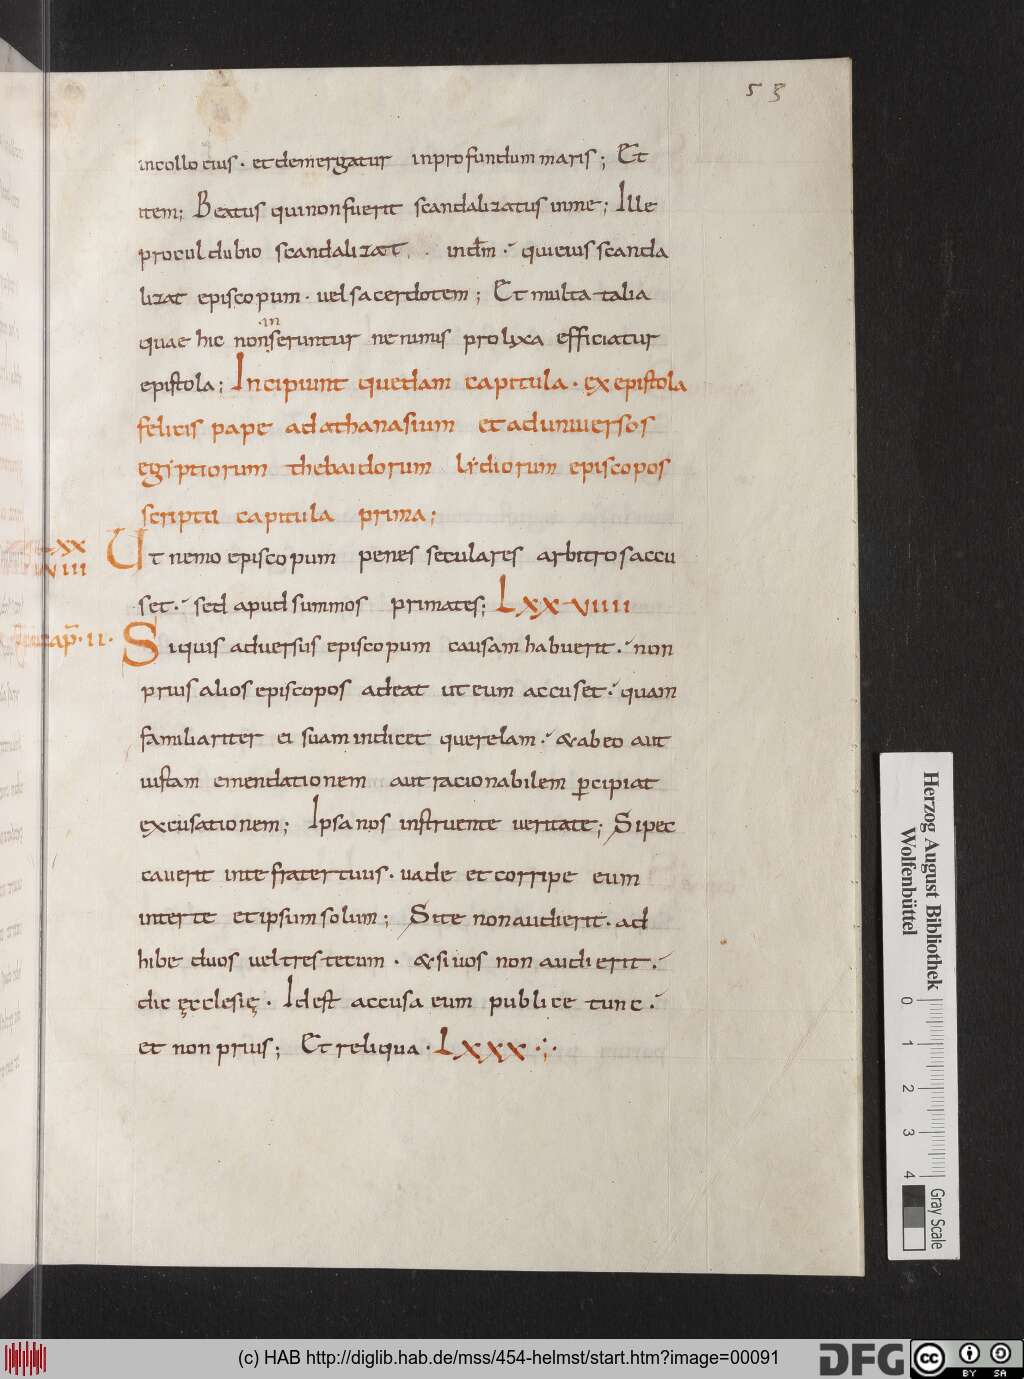 53
incollo eius · et demergatur in profundum maris ; Et
item ; Beatus qui non fuerit scandalizatus in me ; Ille
procul dubio scandalizat . in dm̄ · qui eius scanda
lizat episcopum · vel sacerdotem ; Et multa talia
·in
quae hic non seruntur ne nimis prolyxa efficiatur
epistola ; Incipiunt quedam capitula · ęx epistola
felicis pape ad athanasium et ad universos
egyptiorum thebaidorum lydiorum episcopos
scripta capitula prima ;
LXX
VIII
Ut nemo episcopum penes seculares arbitros accu
set · sed apud summos primates ; LXXVIIII
cap̄ · II ·
Si quis adversus episcopum causam habuerit · non
prius alios episcopos adeat ut eum accuset · quam
familiariter ei suam indicet querelam · & ab eo aut
iustam emendationem aut racionabilem ꝑcipiat
excusationem ; Ipsa nos instruente veritate ; Si pec
caverit in te frater tuus · vade et corripe eum
inter te et ipsum solum ; Si te non audierit · ad
hibe duos vel tres tecum · & si vos non audierit ·
dic ęcclesię · Id est accusa eum publice tunc ·
et non prius ; Et reliqua · LXXX ·:·
Herzog August Bibliothek
Wolfenbüttel
0 1 2 3 4
Gray Scale
(c) HAB http://diglib.hab.de/mss/454-helmst/start.htm?image=00091
DFG
cc BY SA